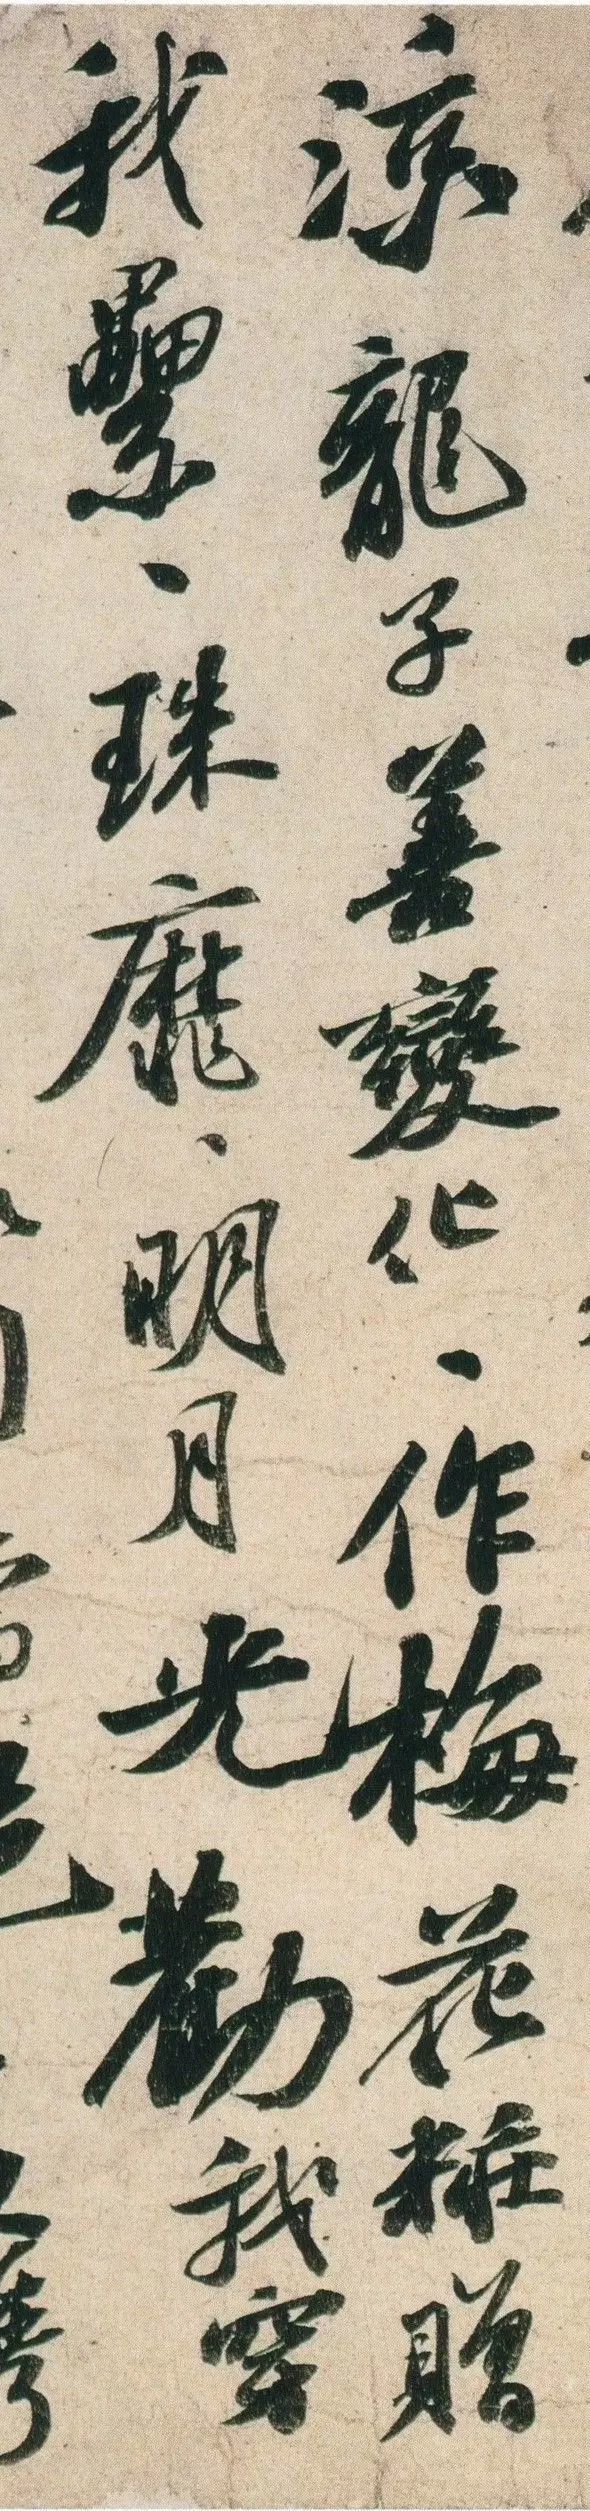 涼龍子善變化、作梅花粧贈
我纍、珠靡、明月光勸我穿